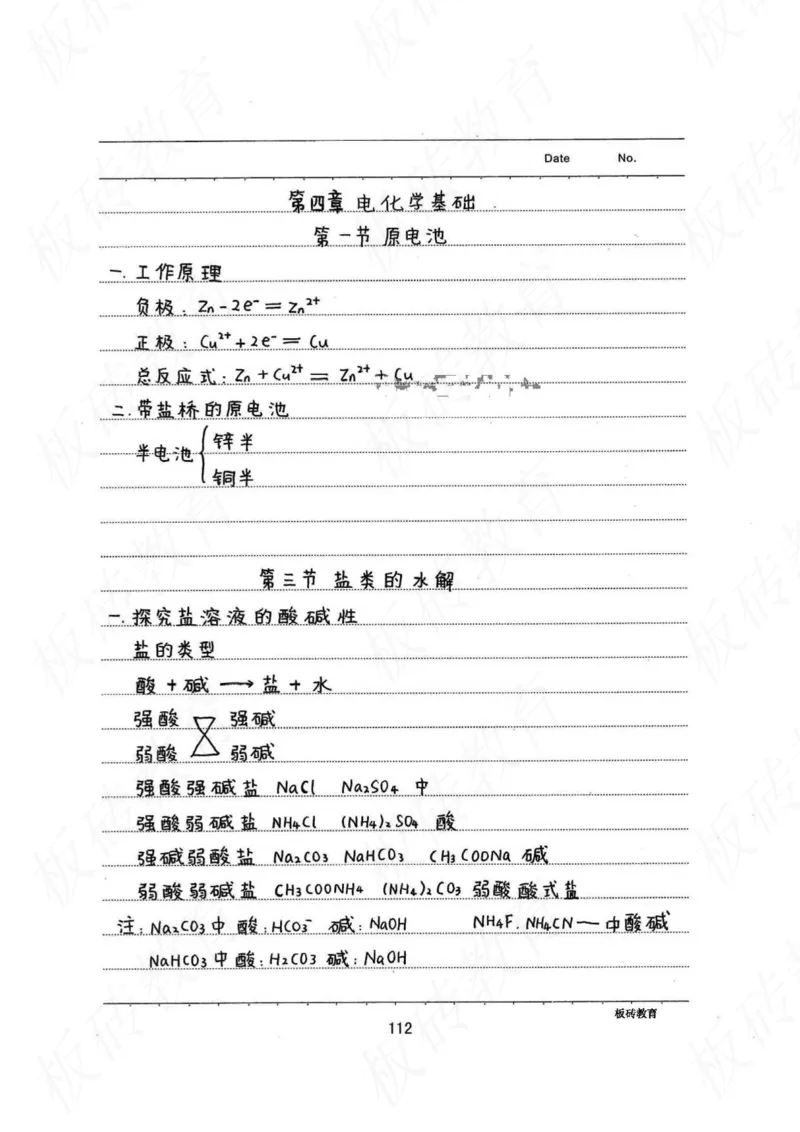 Date No.
第四章 电化学基础
第一节 原电池
一. 工作原理
负极: Zn-2e⁻=Zn²⁺
正极: Cu²⁺+2e⁻=Cu
总反应式: Zn+Cu²⁺=Zn²⁺+Cu
二. 带盐桥的原电池
半电池{锌半
铜半
第三节 盐类的水解
一. 探究盐溶液的酸碱性
盐的类型
酸+碱→盐+水
强酸 强碱
弱酸 弱碱
强酸强碱盐 NaCl Na₂SO₄ 中
强酸弱碱盐 NH₄Cl (NH₄)₂SO₄ 酸
强碱弱酸盐 Na₂CO₃ NaHCO₃ CH₃COONa 碱
弱酸弱碱盐 CH₃COONH₄ (NH₄)₂CO₃ 弱酸酸式盐
注: Na₂CO₃中 酸:HCO₃⁻ 碱:NaOH NH₄F. NH₄CN—中酸碱
NaHCO₃中 酸:H₂CO₃ 碱:NaOH
板砖教育
112